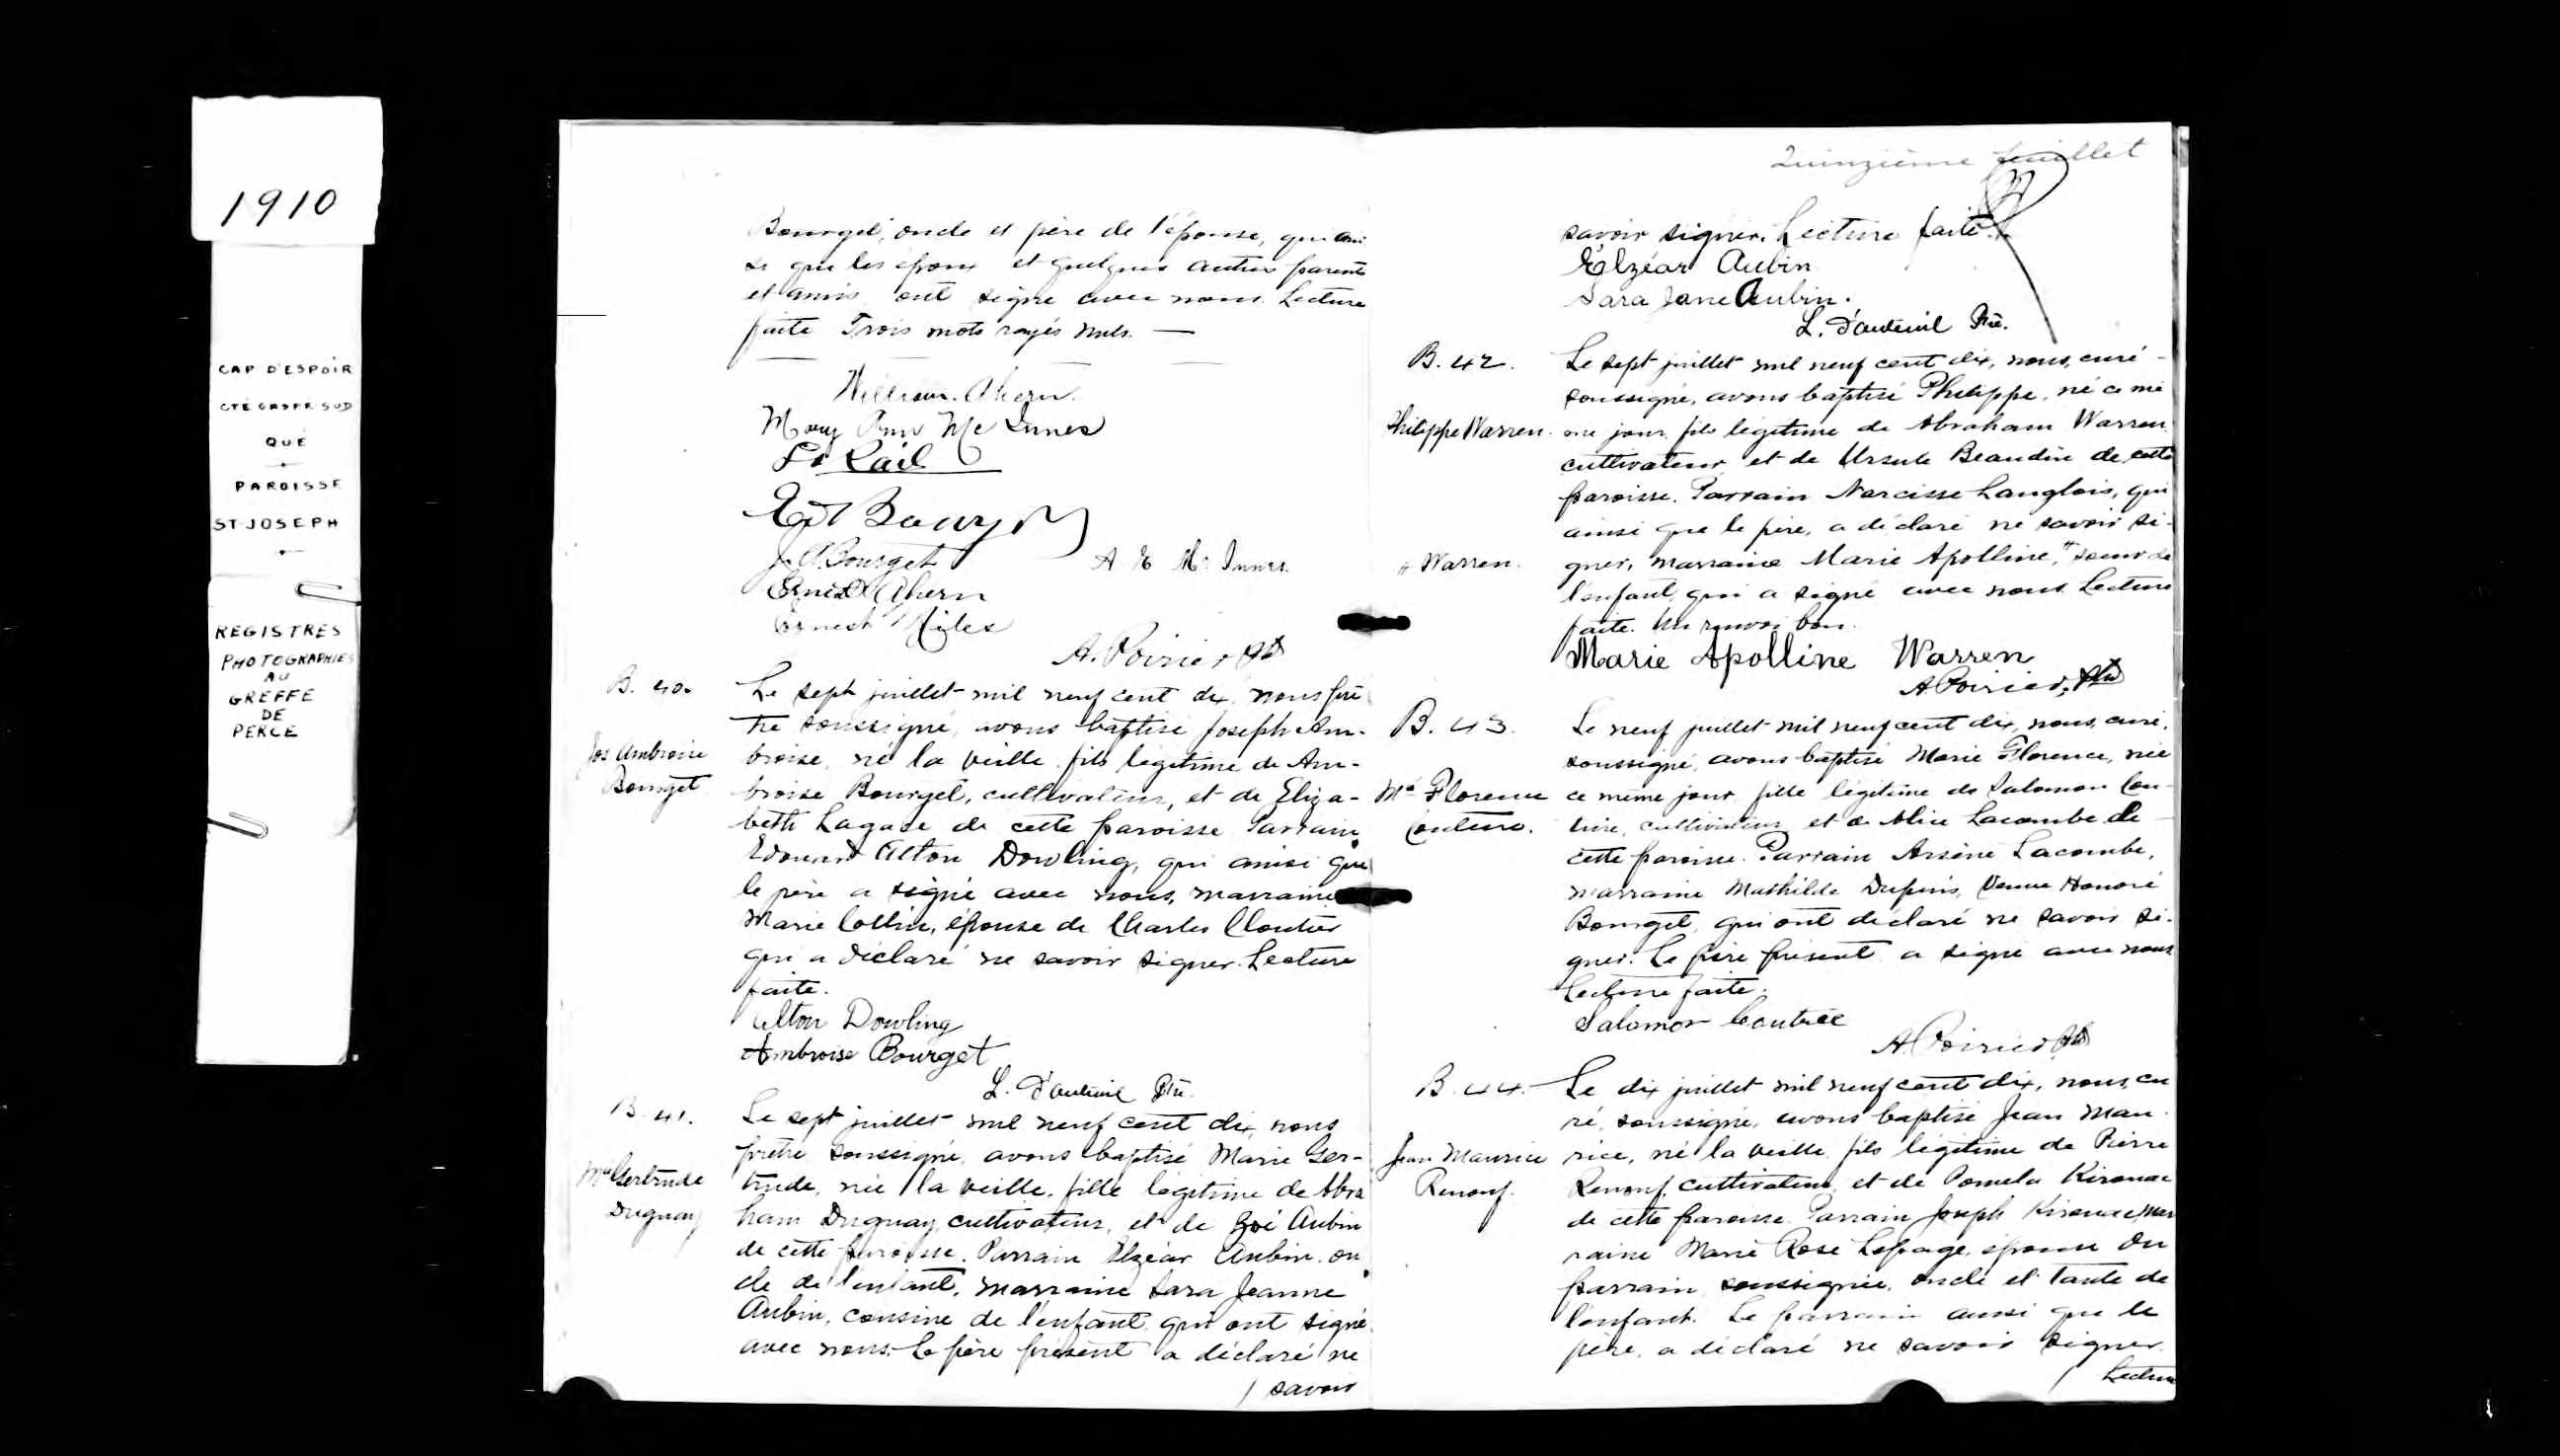 1910
CAP D'ESPOIR
CTÉ GASPE SUD
QUE
PAROISSE
ST-JOSEPH
REGISTRES
PHOTOGRAPHIES
AU
GREFFE
DE
PERCE
Bourget, oncle et père de l'épouse, qui ain
si que les époux et quelques autres parents
et amis ont signé avec nous. Lecture
faite Trois mots rayés nuls. —
William Ahern.
Mary Ann Mc Innes
J. A. Bourget
A E Mc Innes.
Ernest Ahern
Ernest
A. Poirier Ptr
B. 40.
Jos Ambroise
Bourget
Le sept juillet mil neuf cent dix, nous prê
tre soussigné, avons baptisé Joseph Am-
broise, né la veille, fils légitime de Am-
broise Bourget, cultivateur, et de Eliza-
beth Lagacé de cette paroisse Parrain
Edouard Alton Dowling, qui ainsi que
le père a signé avec nous, marraine
Marie Collin, épouse de Charles Cloutier
qui a déclaré ne savoir signer. Lecture
faite.
Alton Dowling
Ambroise Bourget
L. d'auteuil Ptr.
B. 41.
Mie Gertrude
Duguay
Le sept juillet mil neuf cent dix, nous
prêtre soussigné, avons baptisé Marie Ger-
trude, née la veille, fille légitime de Abra
ham Duguay, cultivateur, et de Zoé Aubin
de cette paroisse. Parrain Elzéar Aubin, on
cle de l'enfant, marraine Sara Jeanne
Aubin, cousine de l'enfant qui ont signé
avec nous. Le père présent a déclaré ne
/ savoir
Quinzième feuillet
savoir signer. Lecture faite.
Elzéar Aubin
Sara Jane Aubin.
L. d'auteuil Ptr.
B. 42.
Philippe Warren.
Le sept juillet mil neuf cent dix, nous, curé -
soussigné, avons baptisé Philippe, né ce mê
me jour, fils légitime de Abraham Warren,
cultivateur, et de Ursule Beaudin de cette
paroisse. Parrain Narcisse Langlois, qui
ainsi que le père, a déclaré ne savoir si-
gner, marraine Marie Apolline, # soeur de
# Warren.
l'enfant, qui a signé avec nous. Lecture
faite. Un renvoi bon.
Marie Apolline Warren
A Poirier, Ptr
B. 43.
Me Florence
Couture.
Le neuf juillet mil neuf cent dix, nous, curé,
soussigné, avons baptisé Marie Florence, née
ce même jour, fille légitime de Salomon Cou-
ture, cultivateur, et de Alice Lacombe de -
cette paroisse. Parrain Arsène Lacombe,
marraine Mathilde Dupuis, Veuve Honoré
Bourget, qui ont déclaré ne savoir si-
gner. Le père présent a signé avec nous
Lecture faite.
Salomon Coutrée
A. Poirier Ptr
B. 44.
Jean Maurice
Renouf.
Le dix juillet mil neuf cent dix, nous, cu
ré, soussigné, avons baptisé Jean Mau-
rice, né la veille, fils légitime de Pierre
Renouf, cultivateur, et de Pamela Kirouac
de cette paroisse. Parrain Joseph Kirouac, mar
raine Marie Rose Lepage, épouse du
parrain soussignée, oncle et tante de
l'enfant. Le parrain aussi que le
père, a déclaré ne savoir signer.
/ Lecture